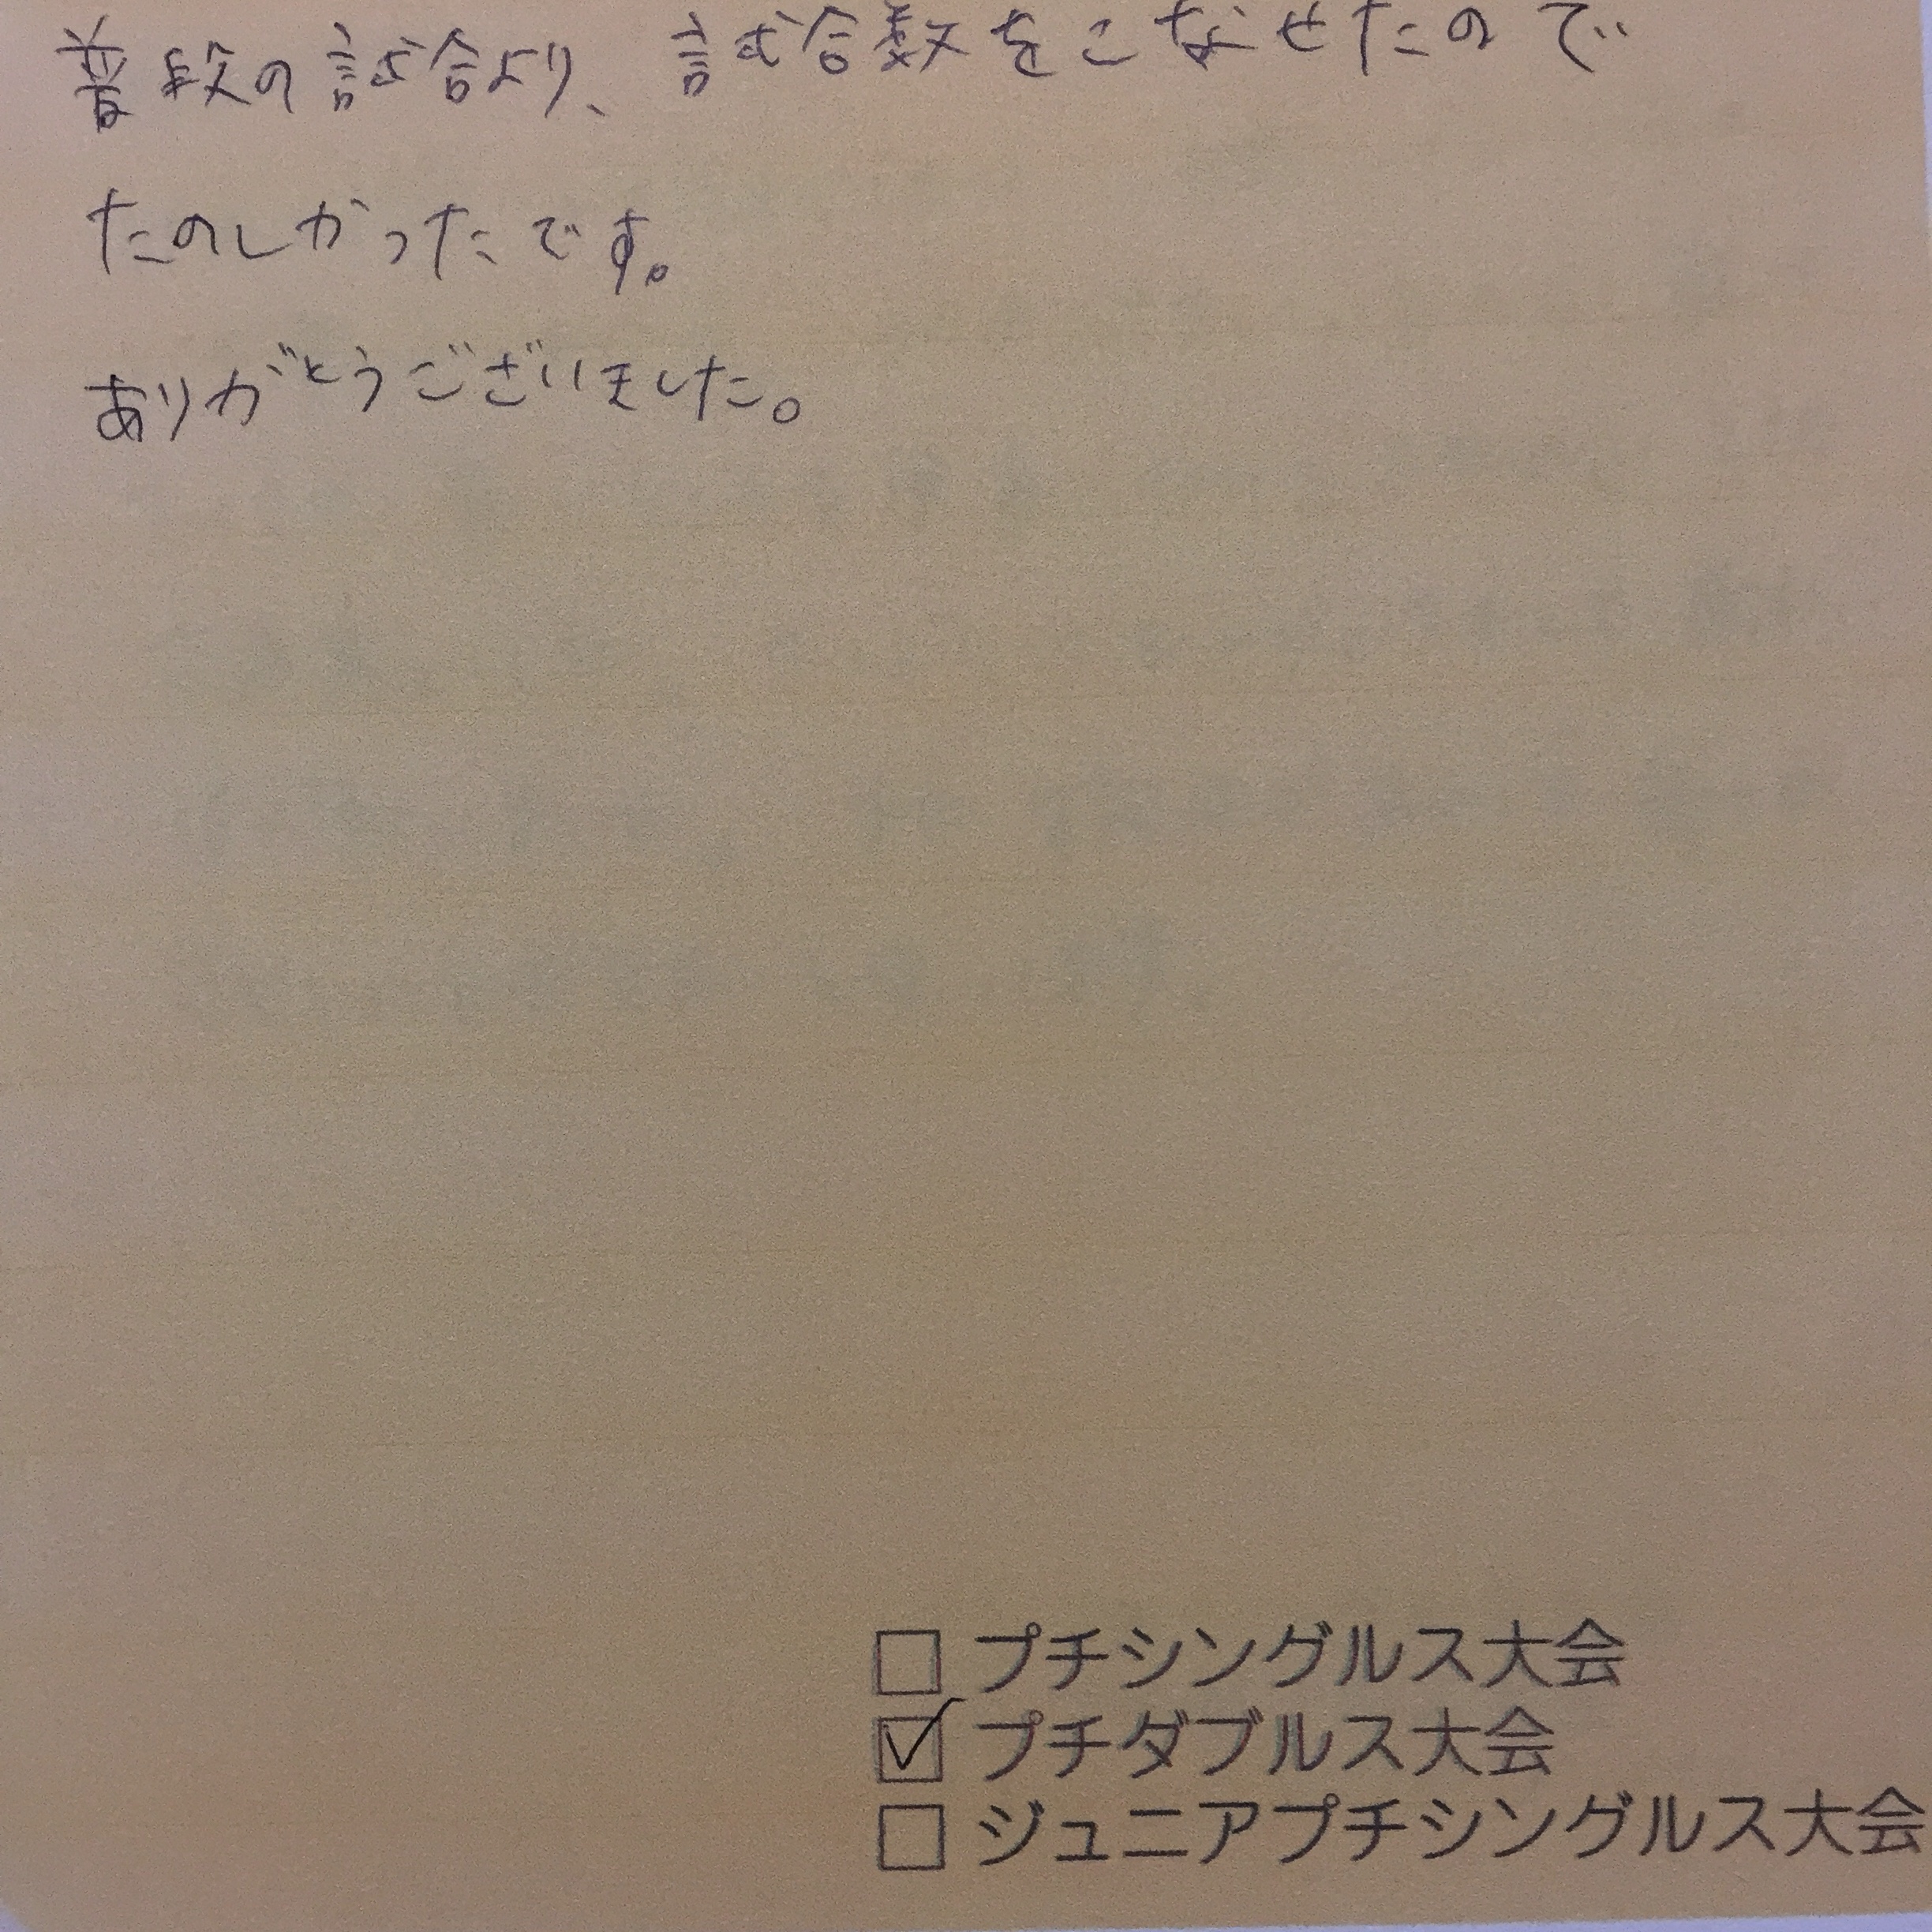 普段の試合より、試合数をこなせたので
たのしかったです。
ありがとうございました。
□ プチシングルス大会
☑ プチダブルス大会
□ ジュニアプチシングルス大会